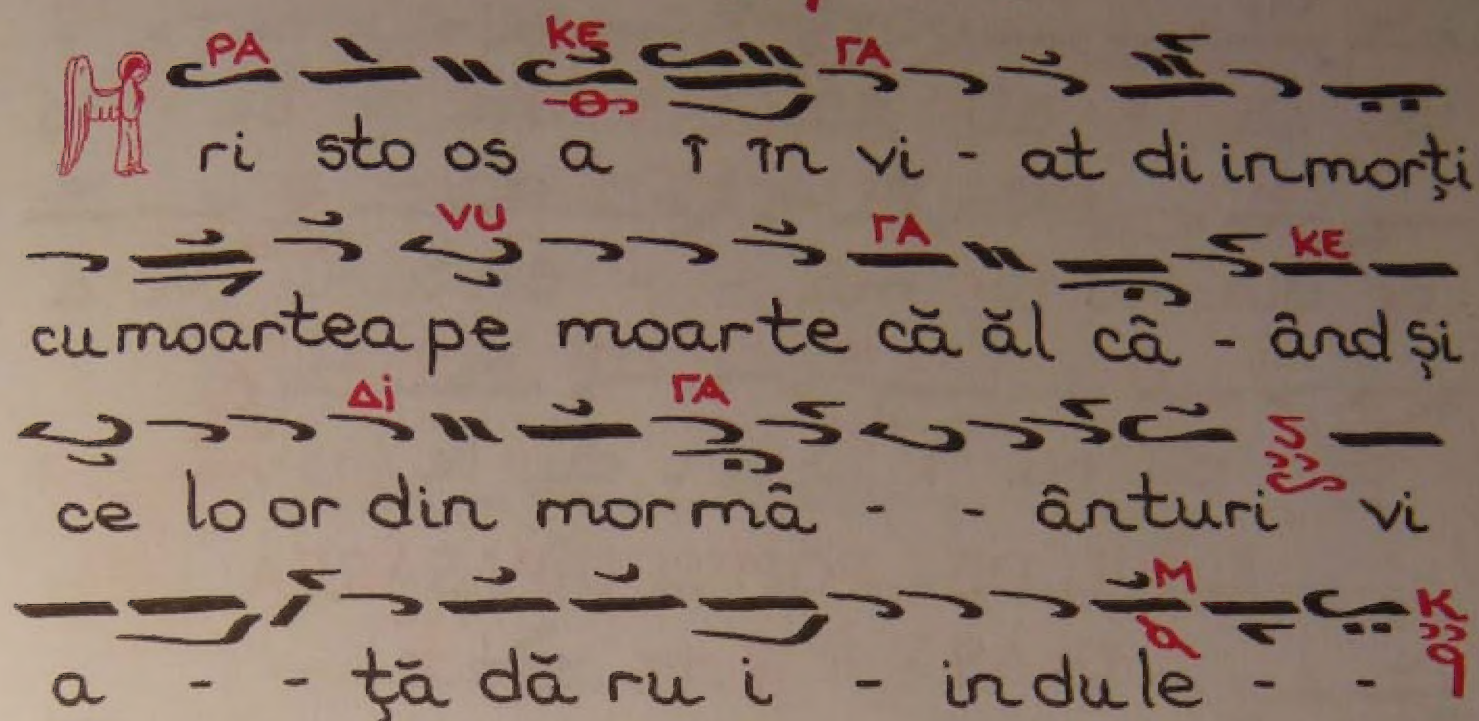 PA KE ГА
ri sto os a î în vi - at di in morți
VU ГА KE
cu moartea pe moarte că ăl câ - ând și
Δi ГА
ce lo or din mor mâ - - ânturi vi
M K
a - - ță dă ru i - in du le - -